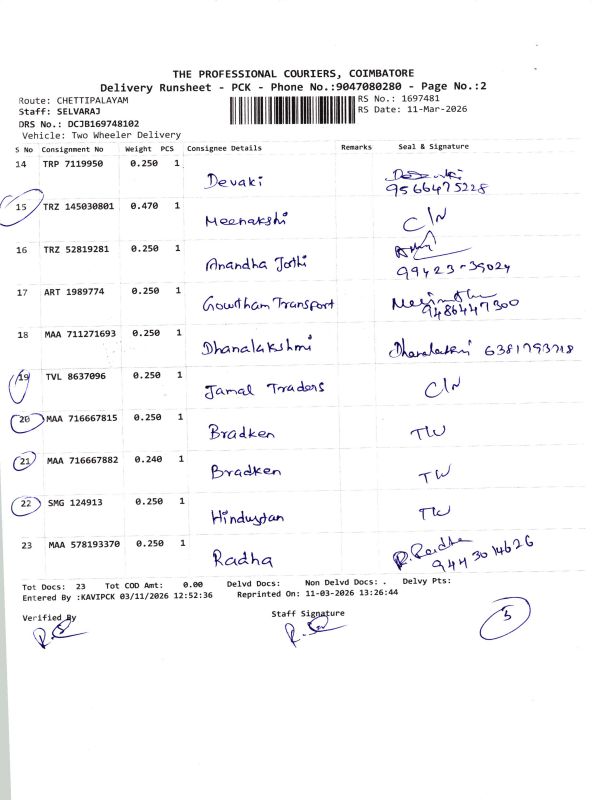 THE PROFESSIONAL COURIERS, COIMBATORE
Delivery Runsheet - PCK - Phone No.:9047080280 - Page No.:2
Route: CHETTIPALAYAM RS No.: 1697481
Staff: SELVARAJ RS Date: 11-Mar-2026
DRS No.: DCJB169748102
Vehicle: Two Wheeler Delivery
S No Consignment No Weight PCS Consignee Details Remarks Seal & Signature
14 TRP 7119950 0.250 1 Devaki
9566475228
15 TRZ 145030801 0.470 1 Meenakshi C/N
16 TRZ 52819281 0.250 1 Anandha Jothi
99423-39024
17 ART 1989774 0.250 1 Gowtham Transport
9486447300
18 MAA 711271693 0.250 1 Dhanalakshmi Dhanalakshmi 6381793718
19 TVL 8637096 0.250 1 Jamal Traders C/N
20 MAA 716667815 0.250 1 Bradken TW
21 MAA 716667882 0.240 1 Bradken TW
22 SMG 124913 0.250 1 Hindustan TW
23 MAA 578193370 0.250 1 Radha R. Radha
9443014626
Tot Docs: 23 Tot COD Amt: 0.00 Delvd Docs: Non Delvd Docs: . Delvy Pts:
Entered By :KAVIPCK 03/11/2026 12:52:36 Reprinted On: 11-03-2026 13:26:44
Verified By Staff Signature
5